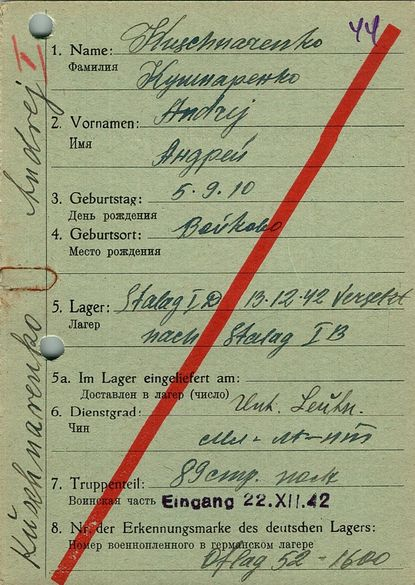 44
I
Kuschnarenko Andrej
1. Name: Kuschnarenko
Фамилия
Кушнаренко
2. Vornamen: Andrej
Имя
Андрей
3. Geburtstag: 5.9.10
День рождения
4. Geburtsort: Войково
Место рождения
5. Lager: Stalag I D 13.12.42 Versetzt
Лагерь
nach Stalag I B
5a. Im Lager eingeliefert am:
Доставлен в лагер (число)
6. Dienstgrad: Unt. Leutn.
Чин
мл-л-нт
7. Truppenteil: 89 стр. полк
Воинская часть Eingang 22.XII.42
8. Nr. der Erkennungsmarke des deutschen Lagers:
Номер военнопленного в германском лагере
Oflag 52-1600